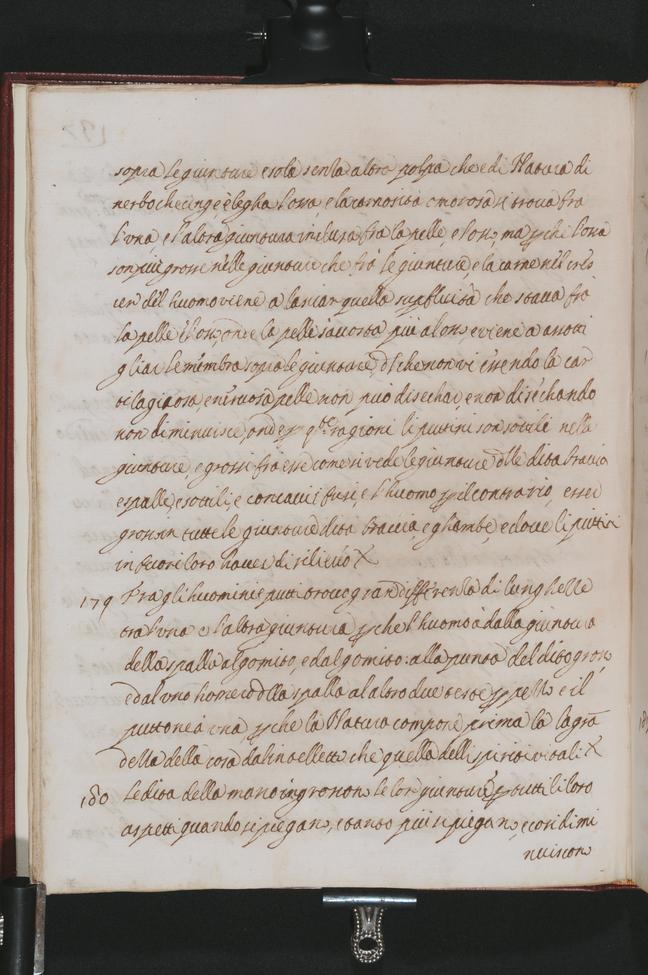 sopra le giunture e sola senza altra polpa che e di Natura di
nerbo che cinge, e legha l'ossa, e la carnosità omorosa si trova fra
l'una, e l'altra giuntura inclusa fra la pelle, e l'osso, ma p che l'ossa
son più grosse nelle giunture che fra le giunture, e la carne nel cres
cer del huomo viene a lasciar quella superfluità che stava fra
la pelle e l'osso, onde la pelle s'accosta più a l'osso, e viene a assotti
gliar le membra sopra le giunture, di che non vi essendo la car
tilaginosa, e nervosa pelle non può disechar, e non disechando
non diminuisce, onde p qste ragioni li puttini son sottili nelle
giunture e grossi fra esse come si vede le giunture delle dita braccia
e spalle, e sottili, e concavi i fusi, e l'huomo p il contrario, esser
grosso in tutte le giunture dita braccia, e ghambe, e dove li puttini
in fuori loro haver di rilievo X
179 Fra gli huomini e putti trovo gran differenza di lunghezze
tra l'una e l'altra giuntura p che l'huomo à dalla giuntura
della spalla al gomito, e dal gomito: alla punta del dito grosso
e dal uno homero della spalla al altro due teste p pezzo e il
putto ne à una p che la Natura compone prima la la gra
dezza della cosa dal inteletto che quella delli spiriti vitali X
180 Le dita della mano ingrossano le lor giunture p tutti li loro
aspetti quando si piegano, e tanto più si piegano, e cosi dimi
nuiscono